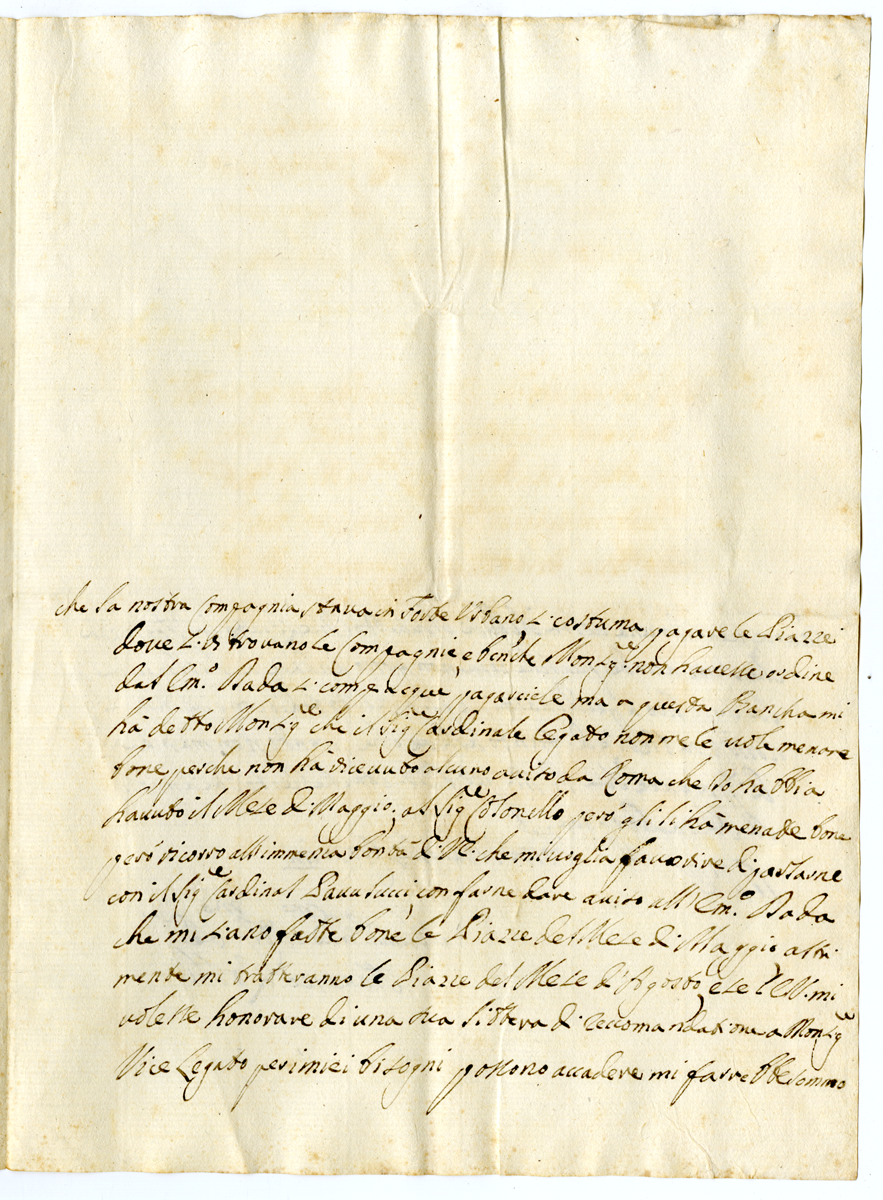 che la nostra Compagnia stava in Forte Urbano si costuma pagare le Piazze
dove si ritrovano le Compagnie e benche Monsg.re non havesse ordine
dal Em.o Bada si compiacque pagarciele ma a questa Bancha mi
hà detto Monsig.re che il Sig.re Cardinale Legato non me le vole menare
bone perche non hà ricevuto alcuno aviso da Roma che Io habbia
havuto il Mese di Maggio. al Sig.re Colonello però gli li hà menade bone
però ricorro all'immensa bontà di VE. che mi voglia favorire di parlarne
con il Sig.re Cardinal Pauulucci con farne dare aviso all'Em.o Bada
che mi siano fatte bone le Piazze del Mese di Maggio altri
mente mi tratteranno le Piazze del Mese d'Agosto, e se l'EV. mi
volesse honorare di una sua littera di reccomandatione a Monsig.re
Vice Legato per i miei bisogni possono accadere mi farebbe sommo